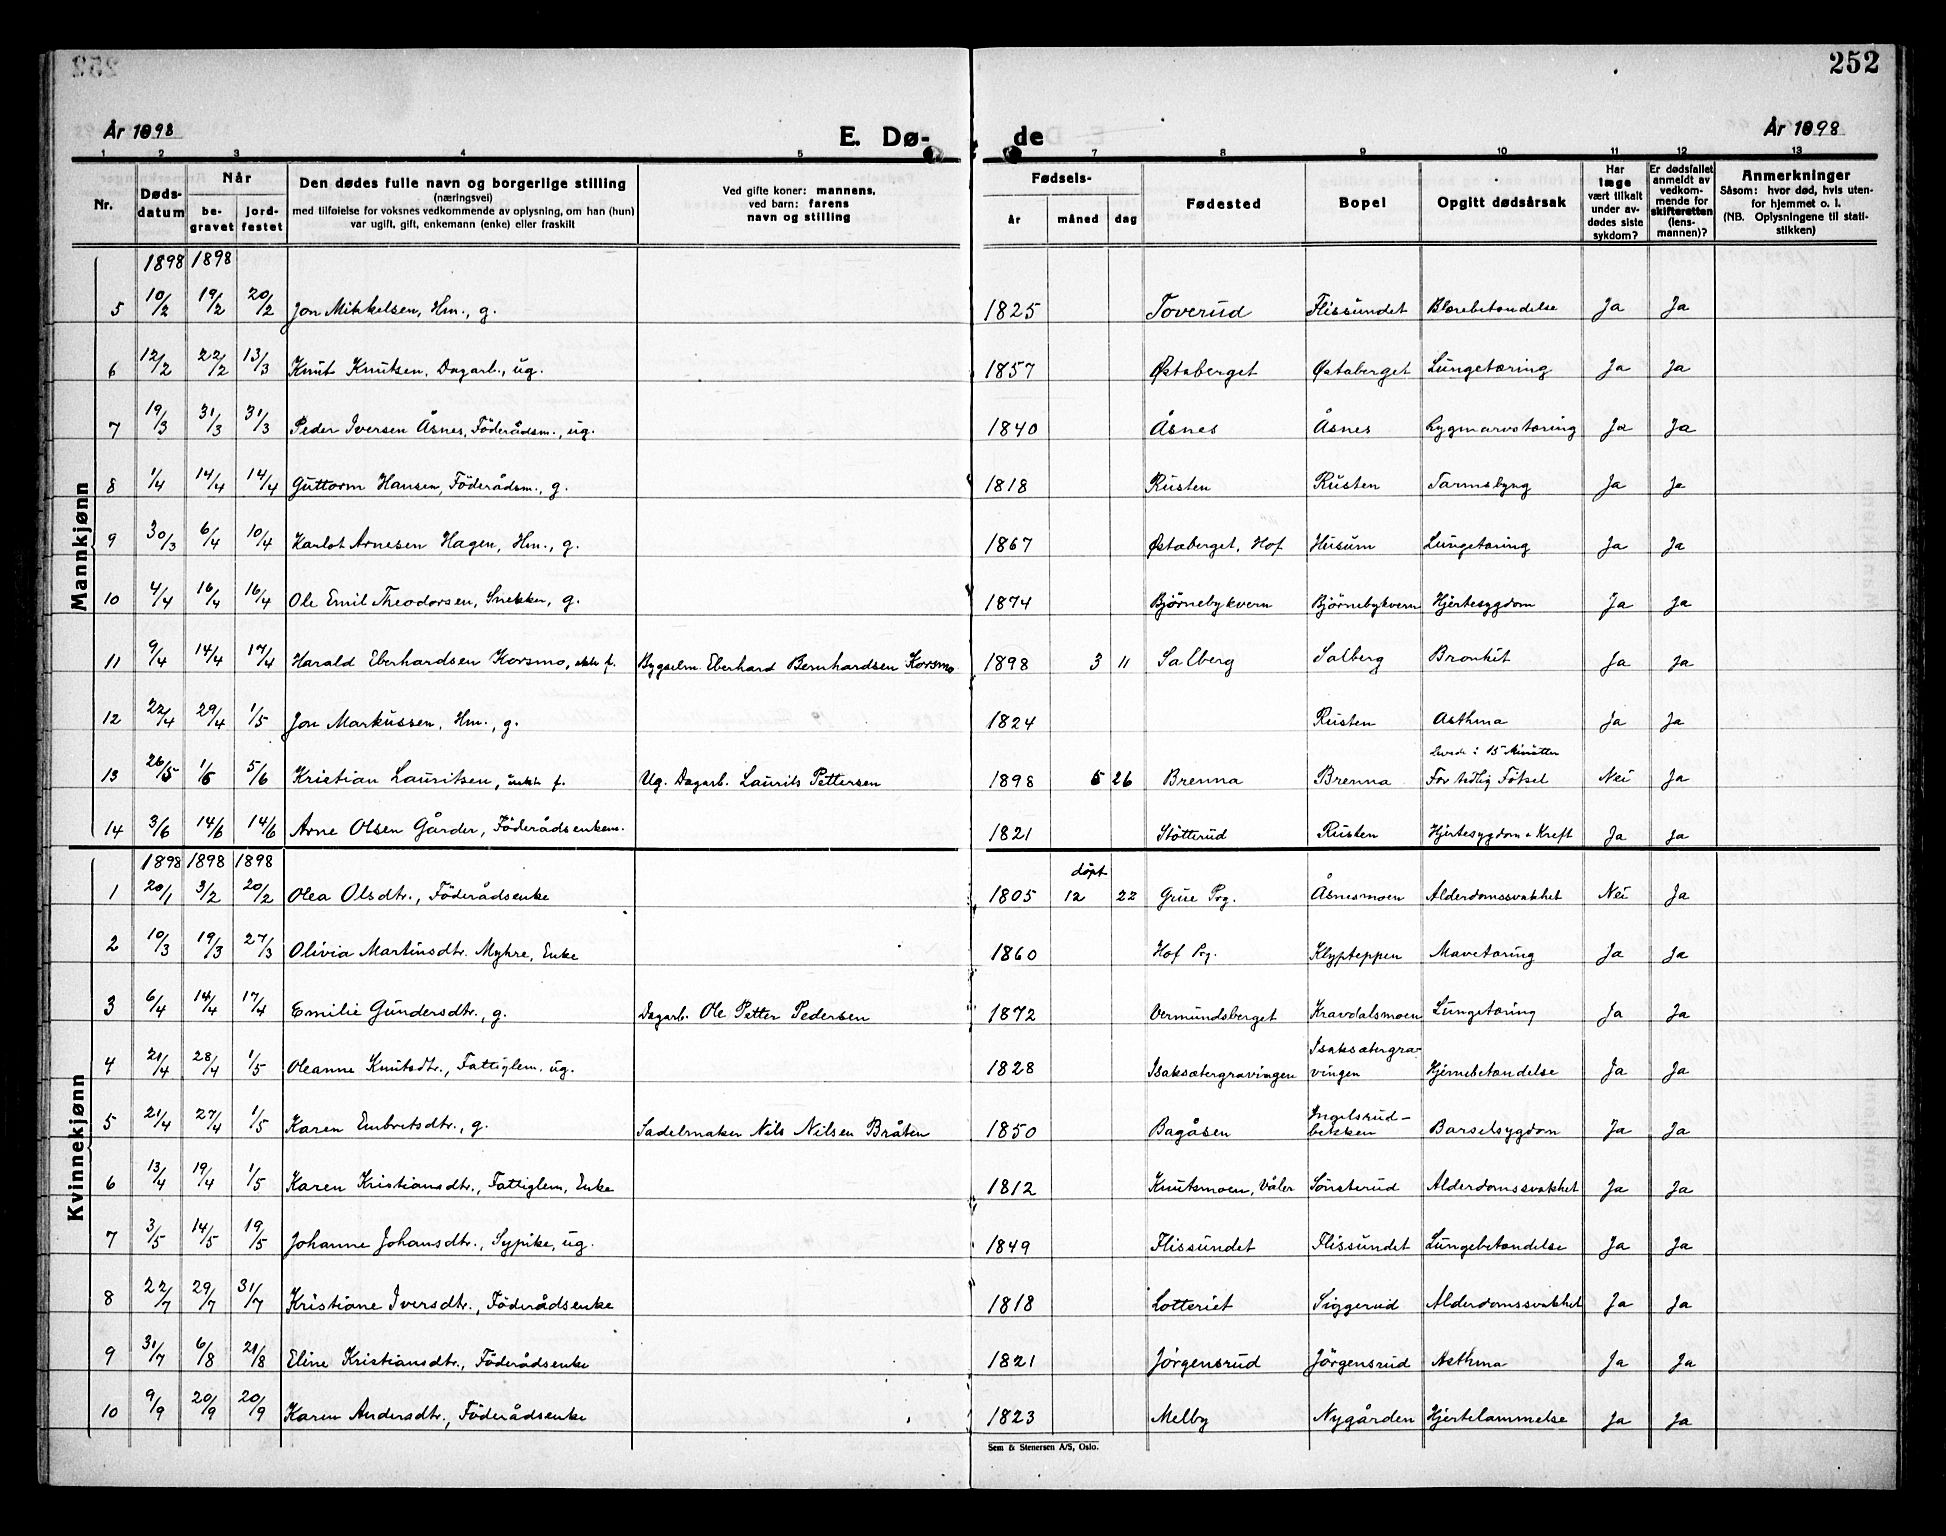 252
År 1898
E. Dø-
de
År 1898
1 2 3 4 5 7 8 9 10 11 12 13
Nr. Døds-datum Når be-gravet jord-festet Den dødes fulle navn og borgerlige stilling (næringsvei) med tilføielse for voksnes vedkommende av oplysning, om han (hun) var ugift, gift, enkemann (enke) eller fraskilt Ved gifte koner: mannens, ved barn: farens navn og stilling Fødsels- år måned dag Fødested Bopel Opgitt dødsårsak Har læge vært tilkalt under av-dødes siste sykdom? Er dødsfallet anmeldt av vedkom-mende for skifteretten (lens-mannen)? Anmerkninger Såsom: hvor død, hvis uten-for hjemmet o. l. (NB. Oplysningene til stati-stikken)
Mannkjønn
1898 1898
5 10/2 19/2 20/2 Jon Mikkelsen, Hm., g. 1825 Toverud Flissundet Blærebetændelse Ja Ja
6 12/2 22/2 13/3 Knut Knutsen, Dagarb., ug. 1857 Østaberget Østaberget Lungetæring Ja Ja
7 19/3 31/3 31/3 Peder Iversen Åsnes, Föderådsm., ug. 1840 Åsnes Åsnes Rygmarvstæring Ja Ja
8 1/4 14/4 14/4 Guttorm Hansen, Föderådsm., g. 1818 Rusten Rusten Tarmslyng Ja Ja
9 30/3 6/4 10/4 Karlot Arnesen Hagen, Hm., g. 1867 Østaberget, Hof Husum Lungetæring Ja Ja
10 4/4 16/4 16/4 Ole Emil Theodorsen, Snekker, g. 1874 Bjørnebykvern Bjørnebykvern Hjertesygdom Ja Ja
11 9/4 14/4 17/4 Harald Eberhardsen Korsmo, ekte f. Bygselm. Eberhard Bernhardsen Korsmo 1898 3 11 Salberg Salberg Bronkit Ja Ja
12 22/4 29/4 1/5 Jon Markussen, Hm., g. 1824 Rusten Asthma Ja Ja
Levede i 15 Minutter
13 26/5 1/6 5/6 Kristian Lauritsen, uekte f. Ug. Dagarb. Laurits Pettersen 1898 5 26 Brenna Brenna For tidlig Fötsel Nei Ja
14 3/6 14/6 14/6 Arne Olsen Gårder, Föderådsenkem. 1821 Støtterud Rusten Hjertesygdom + Kreft Ja Ja
Kvinnekjønn
1898 1898 1898 döpt
1 20/1 3/2 20/2 Olea Olsdtr., Föderådsenke 1805 12 22 Grue Prg. Åsnesmoen Alderdomssvakhet Nei Ja
2 10/3 19/3 27/3 Olivia Martinsdtr. Myhre, Enke 1860 Hof Prg. Klypteppen Mavetæring Ja Ja
3 6/4 14/4 17/4 Emilie Gundersdtr., g. Dagarb. Ole Petter Pedersen 1872 Vermundsberget Kravdalsmoen Lungetæring Ja Ja
4 21/4 28/4 1/5 Oleanne Knutsdtr., Fattiglem, ug. 1828 Isaksætergravingen Isaksætergra-vingen Hjernebetændelse Ja Ja
5 21/4 27/4 1/5 Karen Embretsdtr., g. Sadelmaker Nils Nilsen Bråten 1850 Bagåsen Ingelsrud-bekken Barselsygdom Ja Ja
6 13/4 19/4 1/5 Karen Kristiansdtr., Fattiglem, Enke 1812 Knutsmoen, Våler Sønsterud Alderdomssvakhet Ja Ja
7 3/5 14/5 19/5 Johanne Johansdtr., Sypike, ug. 1849 Flissundet Flissundet Lungebetændelse Ja Ja
8 22/7 29/7 31/7 Kristiane Iversdtr., Föderådsenke 1818 Lotteriet Siggerud Alderdomssvakhet Ja Ja
9 31/7 6/8 21/8 Eline Kristiansdtr., Föderådsenke 1821 Jörgensrud Jörgensrud Asthma Ja Ja
10 9/9 20/9 20/9 Karen Andersdtr., Föderådsenke 1823 Melby Nygården Hjertelammelse Ja Ja
Sem & Stenersen A/S, Oslo.